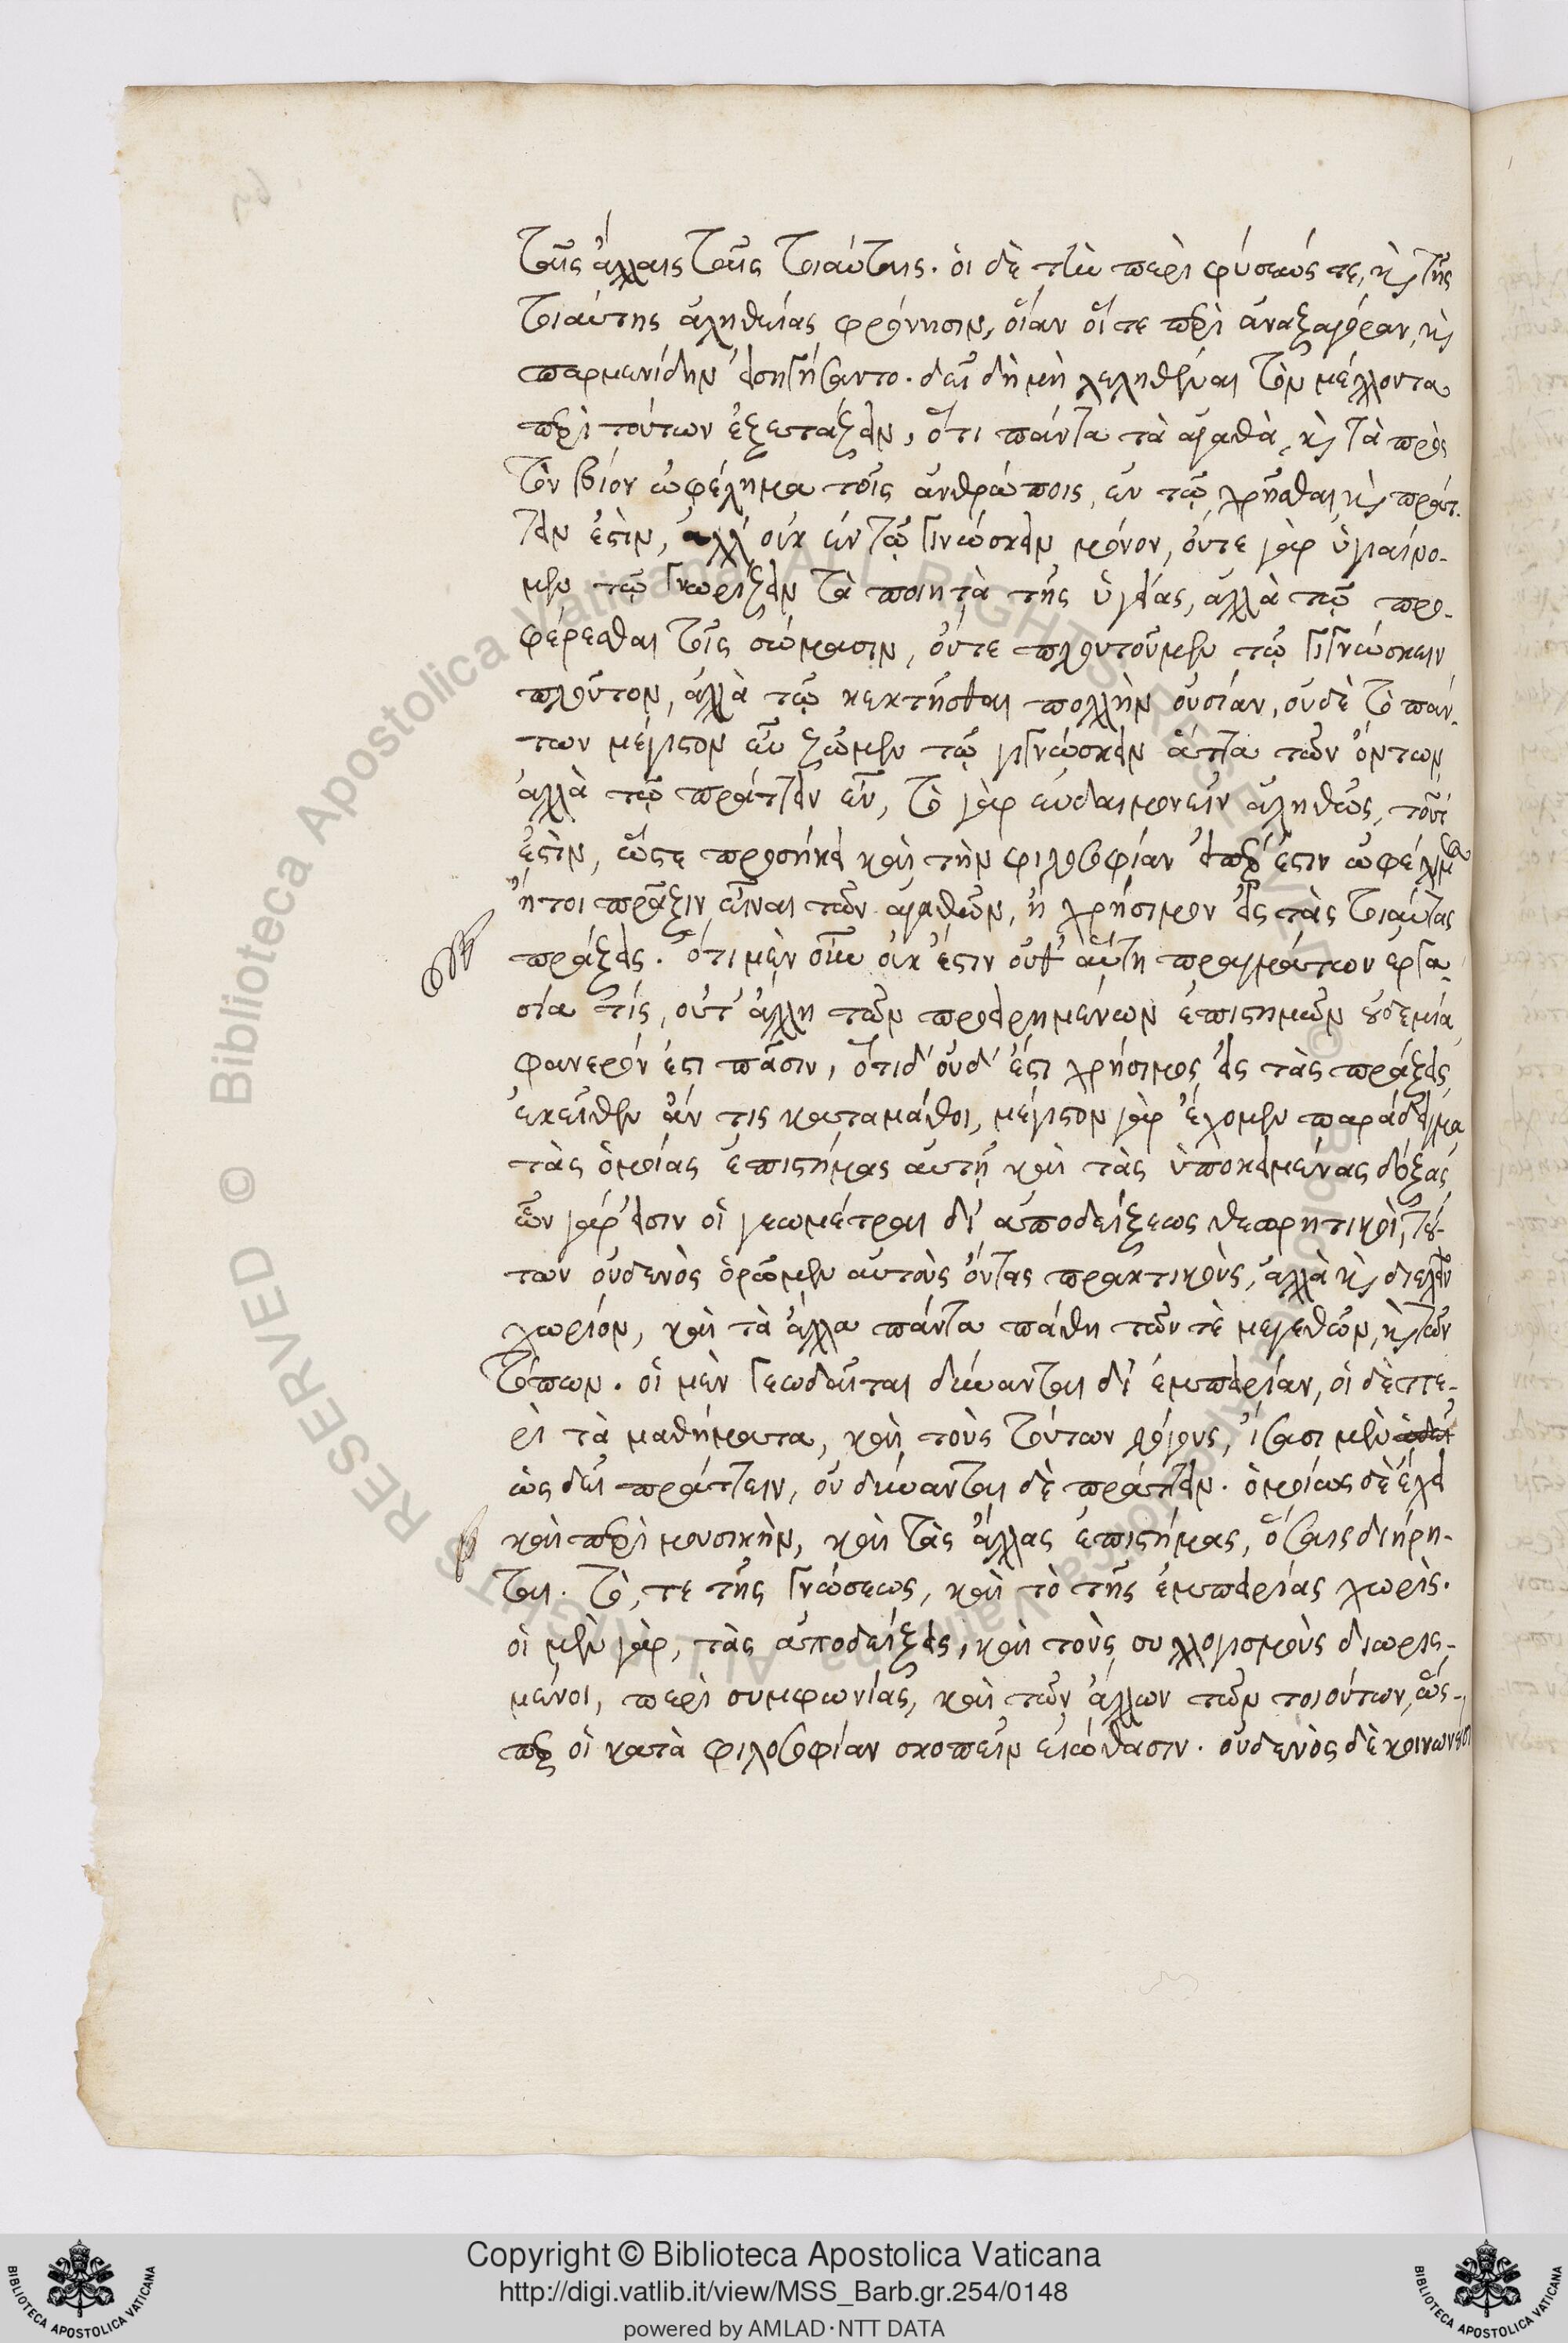 ταῖς ἄλλαις ταῖς τοιαύταις. οἱ δὲ τὴν περὶ φύσεώς τε, καὶ τῆς
τοιαύτης ἀληθείας φρόνησιν, οἵαν οἵ τε περὶ ἀναξαγόραν, καὶ
παρμενίδην εἰσηγήσαντο. δεῖ δὴ μὴ λεληθέναι τὸν μέλλοντα
περὶ τούτων ἐξετάζειν, ὅτι πάντα τὰ ἀγαθὰ, καὶ τὰ πρὸς
τὸν βίον ὠφέλημα τοῖς ἀνθρώποις, ἐν τῷ χρῆσθαι καὶ πράτ-
τειν ἐστὶν, ἀλλ' οὐκ ἐν τῷ γινώσκειν μόνον, οὔτε γὰρ ὑγιαίνο-
μεν τῷ γνωρίζειν τὰ ποιητὰ τῆς ὑγείας, ἀλλὰ τῷ προ-
φέρεσθαι τοῖς σώμασιν, οὔτε πλουτοῦμεν τῷ γιγνώσκειν
πλοῦτον, ἀλλὰ τῷ κεκτῆσθαι πολλὴν οὐσίαν, οὐδὲ τὸ πάν-
των μέγιστον εὖ ζῶμεν τῷ γιγνώσκειν ἄττα τῶν ὄντων,
ἀλλὰ τῷ πράττειν εὖ, τὸ γὰρ εὐδαιμονεῖν ἀληθῶς, τοῦτ'
ἐστὶν, ὥστε προσήκει καὶ τὴν φιλοσοφίαν εἴπερ ἔστιν ὠφέλιμος
ἤτοι πρᾶξιν εἶναι τῶν ἀγαθῶν, ἢ χρήσιμον εἰς τὰς τοιαύτας
πράξεις. ὅτι μὲν οὖν οὐκ ἔστιν οὔθ' αὕτη πραγμάτων ἐργα-
σία τίς, οὔτ' ἄλλη τῶν προειρημένων ἐπιστημῶν οὐδεμία,
φανερόν ἐστι πᾶσιν, ὅτι δ' οὐδ' ἔστι χρήσιμος εἰς τὰς πράξεις
ἐκεῖθεν ἄν τις καταμάθοι, μέγιστον γὰρ ἔχομεν παράδειγμα
τὰς ὁμοίας ἐπιστήμας αὐτῇ καὶ τὰς ὑποκειμένας δόξας,
ὧν γάρ εἰσιν οἱ γεωμέτραι δι' ἀποδείξεως θεωρητικοὶ, τού-
των οὐδενὸς ὁρῶμεν αὐτοὺς ὄντας πρακτικοὺς, ἀλλὰ καὶ διελεῖν
χωρίον, καὶ τὰ ἄλλα πάντα πάθη τῶν τὲ μεγεθῶν, καὶ τῶν
τόπων. οἱ μὲν γεωδαῖται δύνανται δι' ἐμπειρίαν, οἱ δὲ πε-
ρὶ τὰ μαθήματα, καὶ τοὺς τούτων λόγους, ἴσασι μὲν
ὡς δεῖ πράττειν, οὐ δύνανται δὲ πράττειν. ὁμοίως δὲ ἔχει
καὶ περὶ μουσικὴν, καὶ τὰς ἄλλας ἐπιστήμας, ὅσαις διήρη-
ται. τό, τε τῆς γνώσεως, καὶ τὸ τῆς ἐμπειρίας χωρὶς.
οἱ μὲν γὰρ, τὰς ἀποδείξεις, καὶ τοὺς συλλογισμοὺς διωρις-
μένοι, περὶ συμφωνίας, καὶ τῶν ἄλλων τῶν τοιούτων, ὥς-
περ οἱ κατὰ φιλοσοφίαν σκοπεῖν εἰώθασιν. οὐδενὸς δὲ κοινωνοῦσι
Copyright © Biblioteca Apostolica Vaticana
http://digi.vatlib.it/view/MSS_Barb.gr.254/0148
powered by AMLAD·NTT DATA